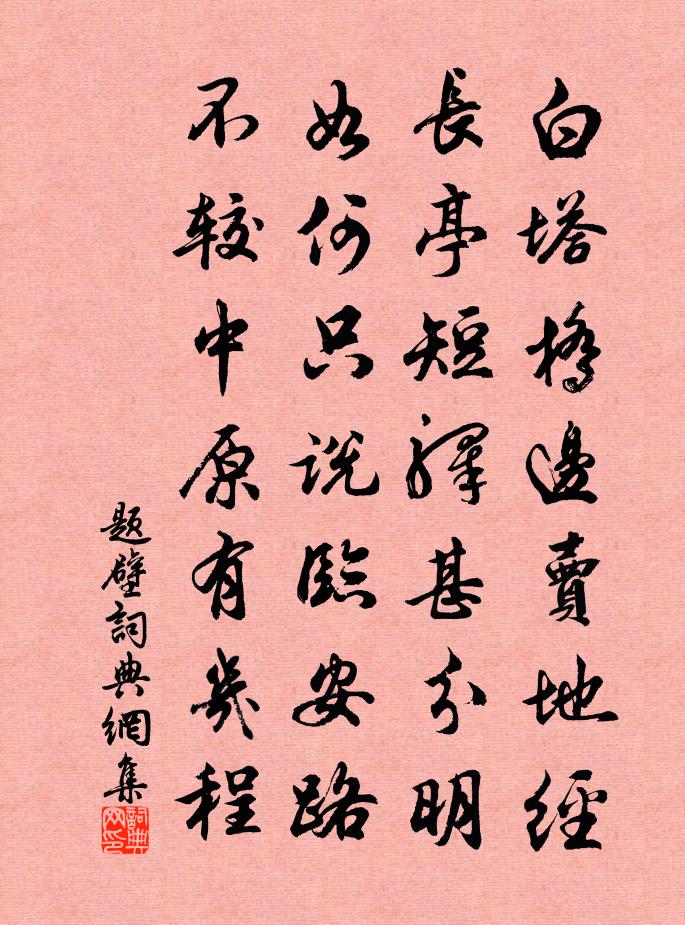 白塔橋邊賣地經
長亭短驛甚分明
如何只說臨安路
不較中原有幾程
題壁詞典網集
詞典網印